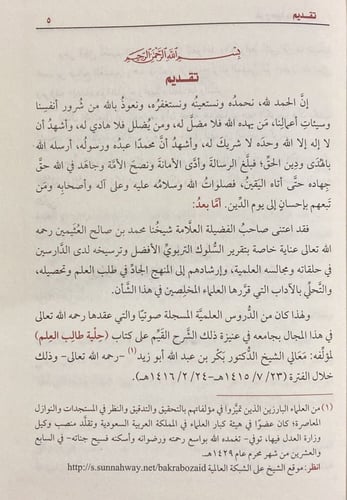 تقديم
٥
بِسْمِ اللَّهِ الرَّحْمَنِ الرَّحِيمِ
تقديم
إنَّ الحمد لله، نحمدُه ونستعينُه ونستغفرُه، ونعوذُ بالله من شُرور أنفسِنا
وسيئاتِ أعمالِنا، مَن يهده الله فلا مضلَّ له، ومن يُضلل فلا هادي له، وأشهدُ أن
لا إله إلا الله وحدَه لا شريكَ له، وأشهدُ أنَّ محمدًا عبدُه ورسولُه، أرسله الله
بالهُدَى ودِينِ الحقِّ؛ فبلَّغ الرسالةَ وأدَّى الأمانةَ ونصحَ الأمَّةَ وجاهَد في الله حقَّ
جِهاده حتَّى أتاه اليَقينُ، فصلواتُ الله وسلامُه عليه وعلى آله وأصحابِه ومَن
تَبعهم بإحسانٍ إلى يوم الدِّين. أمَّا بعدُ:
فقد اعتنى صاحبُ الفضيلة العلَّامة شيخُنا محمد بن صالح العُثيمين رحمه
الله تعالى عناية خاصة بتقرير السُّلوك التربويِّ الأفضل وترسيخه لدى الدَّارسين
في حلقاته ومجالسه العلمية، وإرشادِهم إلى المنهج الجادِّ في طلب العلم وتحصيله،
والتَّحلِّي بالآداب التي قرَّرها العلماء المخلِصين في هذا الشَّأن.
ولهذا كان من الدُّروس العلميَّة المسجلة صوتيًّا والتي عقدها رحمه الله تعالى
في هذا المجال بجامعه في عنيزة ذلك الشَّرح القيِّم على كتاب (حِلْية طالِب العِلم)
لمؤلِّفه: مَعَالي الشيخ الدُّكتور بَكْر بن عبد الله أبو زيد(١) -رحمه الله تعالى- وذلك
خلال الفترة (٢٣/ ٧/ ١٤١٥هـ-٢٤/ ٢/ ١٤١٦هـ).
(١) من العلماء البارزين الذين تميَّزوا في مؤلفاتهم بالتحقيق والتدقيق والنظر في المستجدات والنوازل
المعاصرة؛ كان عضوًا في هيئة كبار العلماء في المملكة العربية السعودية وتقلَّد منصب وكيل
وزارة العدل فيها، توفي- تغمده الله بواسع رحمته ورضوانه وأسكنه فسيح جناته- في السابع
والعشرين من شهر محرم عام ١٤٢٩هـ.
انظر: موقع الشيخ على الشبكة العالمية http://s.sunnahway.net/bakrabozaid